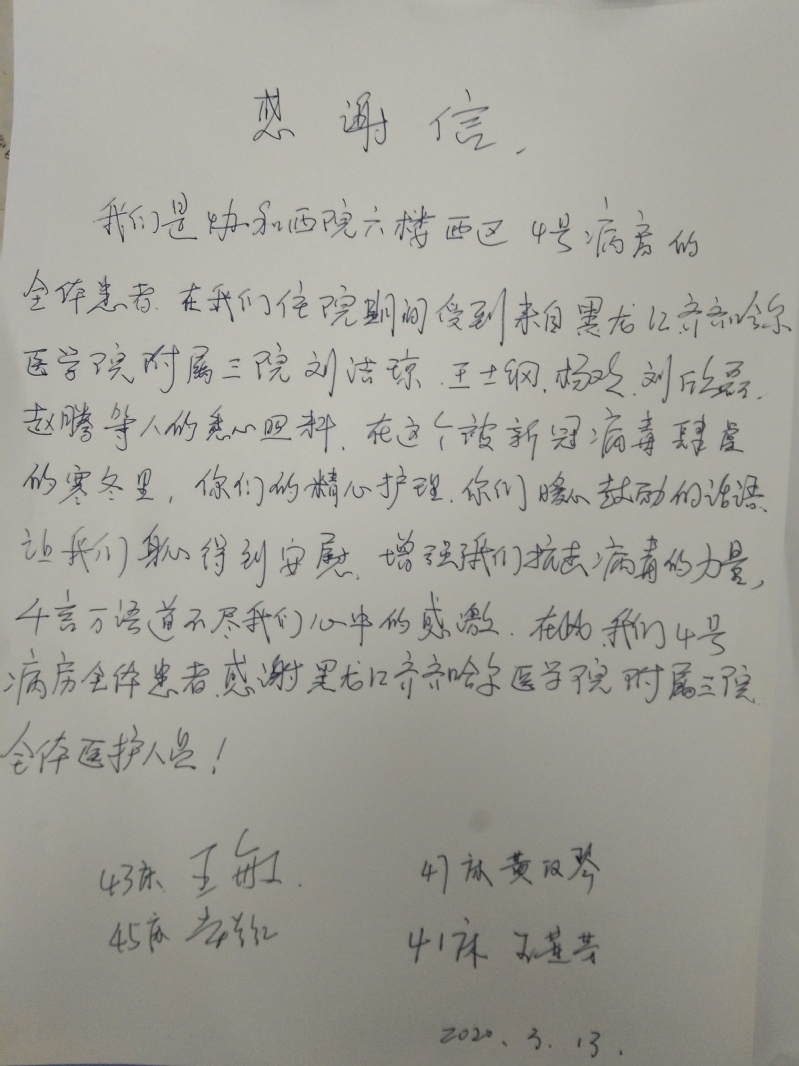 感谢信.
我们是协和西院六楼西区4号病房的
全体患者.在我们住院期间受到来自黑龙江齐齐哈尔
医学院附属三院刘洁琼.王士钢.杨欢.刘欣磊.
赵腾等人的悉心照料.在这个被新冠病毒肆虐
的寒冬里,你们的精心护理.你们暖心鼓励的话语.
让我们身心得到安慰.增强我们抗击病毒的力量,
千言万语道不尽我们心中的感激.在此.我们4号
病房全体患者.感谢黑龙江齐齐哈尔医学院附属三院
全体医护人员!
43床 王敏.
47床 黄琴
45床
41床
2020.3.13.